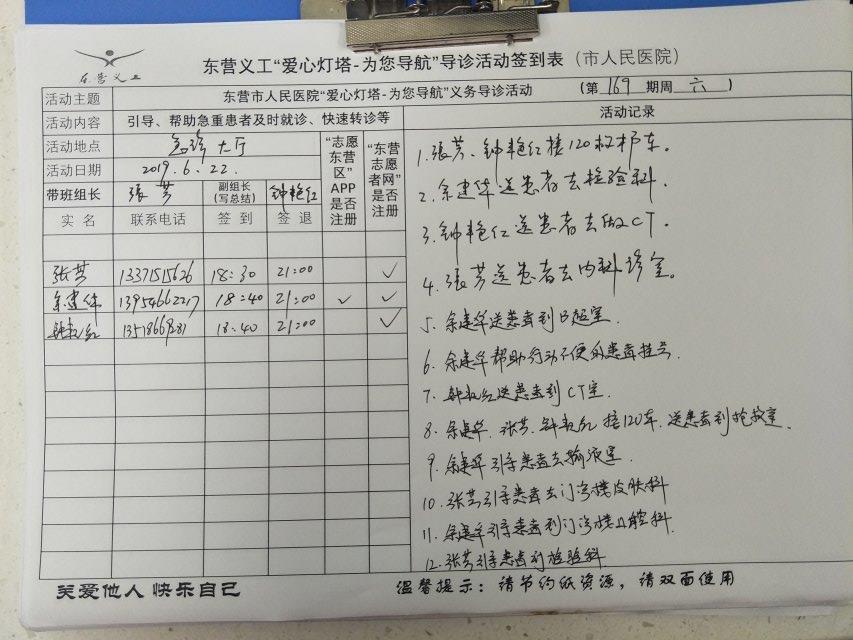 东营义工
东营义工“爱心灯塔-为您导航”导诊活动签到表(市人民医院)
活动主题 东营市人民医院“爱心灯塔-为您导航”义务导诊活动 (第169期周六)
活动内容 引导、帮助急重患者及时就诊、快速转诊等
活动地点 急诊大厅
活动日期 2019.6.22.
带班组长 张芳 副组长(写总结) 钟艳红
实名 联系电话 签到 签退 “志愿东营区”APP是否注册 “东营志愿者网”是否注册
张芳 13371515626 18:30 21:00 ✓
余建华 13954662217 18:40 21:00 ✓ ✓
钟艳红 18:40 21:00 ✓
活动记录
1.张芳、钟艳红接120担架车。
2.余建华送患者去检验科。
3.钟艳红送患者去做CT.
4.张芳送患者去内科诊室。
5.余建华送患者到B超室.
6.余建华帮助行动不便的患者挂号.
7.钟艳红送患者到CT室.
8.余建华.张芳.钟艳红接120车.送患者到抢救室.
9.余建华引导患者去输液室.
10.张芳引导患者去门诊楼皮肤科
11.余建华引导患者到门诊楼口腔科.
12.张芳引导患者到检验科
关爱他人 快乐自己
温馨提示:请节约纸资源,请双面使用